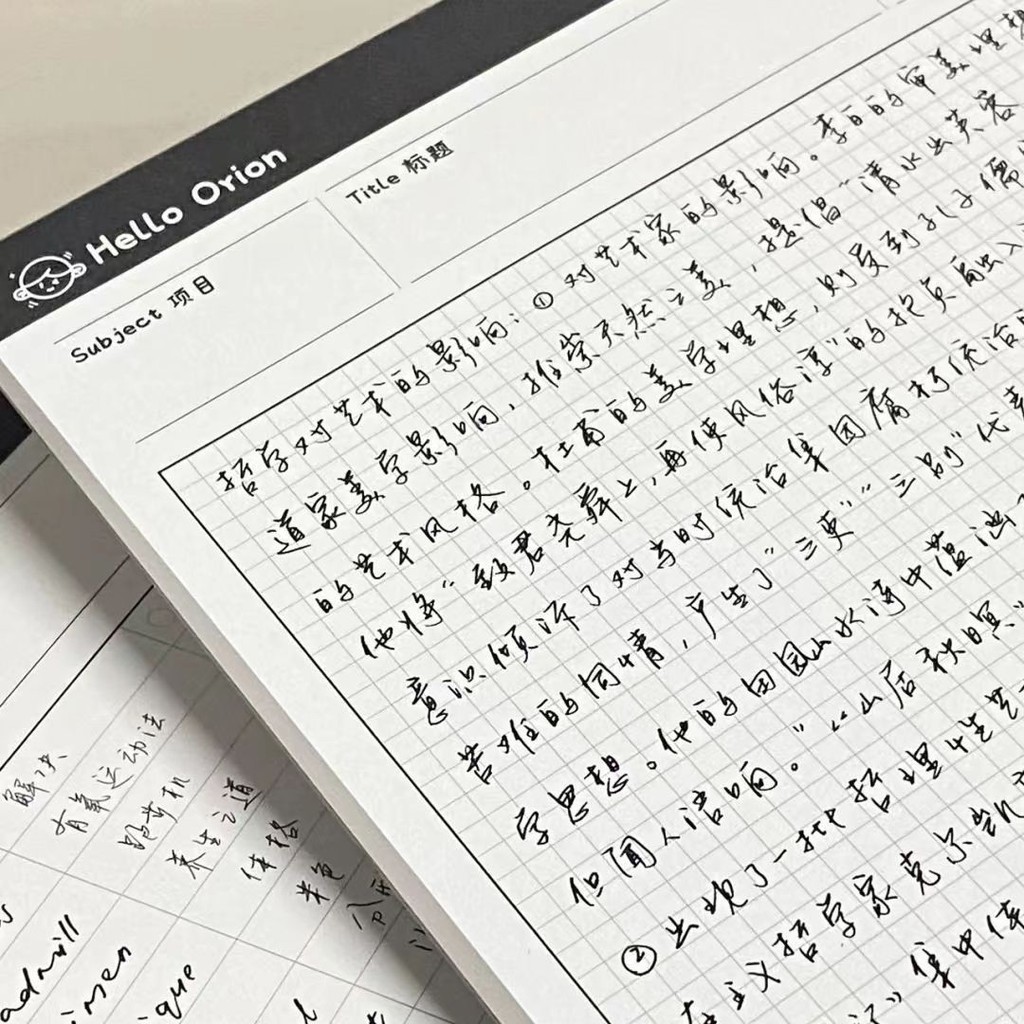 Hello Orion
Subject 项目
Title 标题
哲学对艺术的影响：① 对艺术家的影响。李白的审美理想
道家美学影响，推崇天然之美，提倡“清水出芙蓉
的艺术风格。杜甫的美学理想，则受到孔子儒
他将“致君尧舜上，再使风俗淳”的抱负融入
意识倾诉了对当时统治集团腐朽统治
苦难的同情，产生了“三吏”“三别”代表
学思想。他的田园山水诗中蕴涵
但闻人语响。”《山居秋暝》
② 出现了一批哲理性艺
在主义哲学家克尔凯
集中体
解决
有氧运动法
跑步机
养生之道
体格
米色
admill
imen
ique